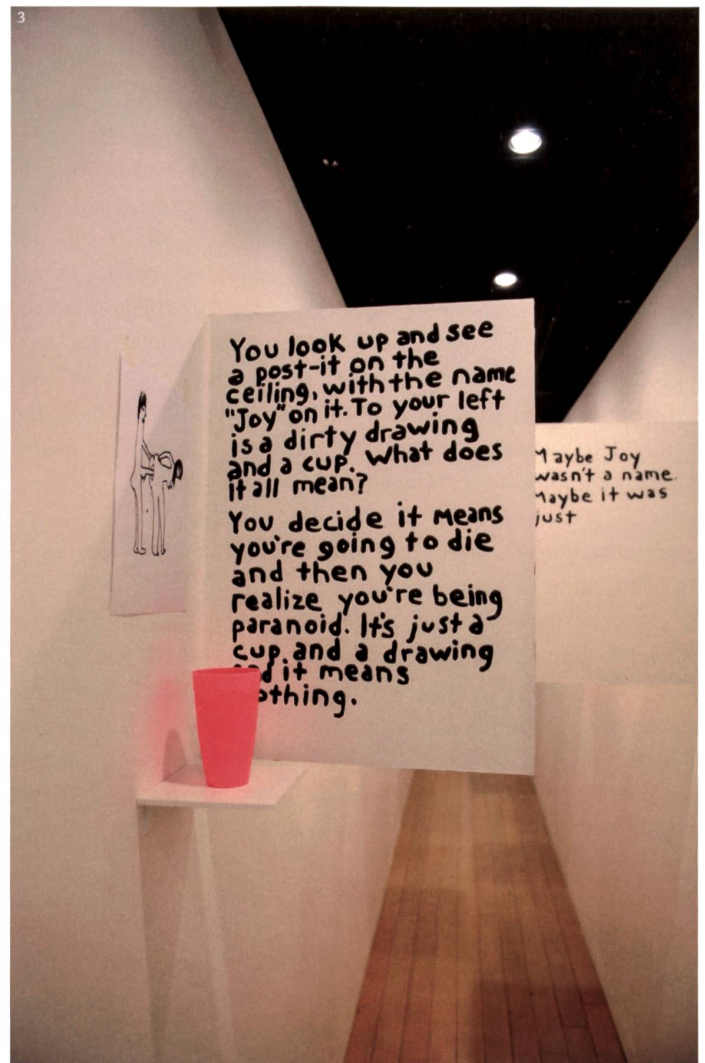 3
You look up and see
a post-it on the
ceiling, with the name
"Joy" on it. To your left
is a dirty drawing
and a cup. What does
it all mean?
You decide it means
you're going to die
and then you
realize you're being
paranoid. It's just a
cup and a drawing
it means
Maybe Joy
wasn't a name.
Maybe it was
just